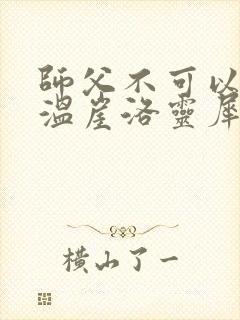 師父不可以
溫崖洛靈犀
橫山了一